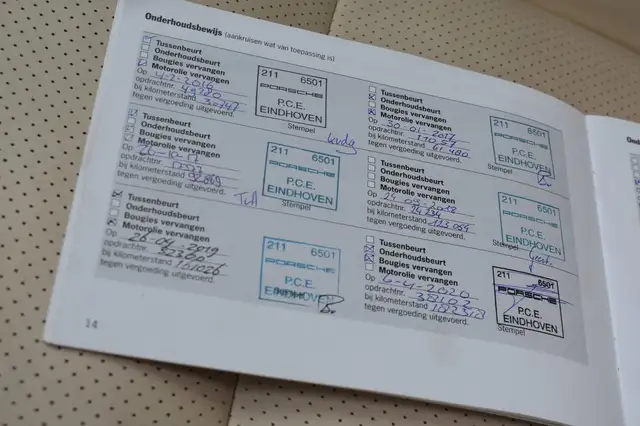 Onderhoudsbewijs (aankruisen wat van toepassing is)
Tussenbeurt
Onderhoudsbeurt
Bougies vervangen
Motorolie vervangen
Op 4-2-2016
opdrachtnr.
bij kilometerstand
tegen vergoeding uitgevoerd.
211 6501
PORSCHE
P.C.E.
EINDHOVEN
Stempel
Tussenbeurt
Onderhoudsbeurt
Bougies vervangen
Motorolie vervangen
Op 30-01-2017
opdrachtnr.
bij kilometerstand 61.480
tegen vergoeding uitgevoerd.
211 6501
PORSCHE
P.C.E.
EINDHOVEN
Tussenbeurt
Onderhoudsbeurt
Bougies vervangen
Motorolie vervangen
Op
opdrachtnr.
bij kilometerstand
tegen vergoeding uitgevoerd.
211 6501
PORSCHE
P.C.E.
EINDHOVEN
Stempel
Tussenbeurt
Onderhoudsbeurt
Bougies vervangen
Motorolie vervangen
Op
opdrachtnr.
bij kilometerstand
tegen vergoeding uitgevoerd.
211 6501
PORSCHE
P.C.E.
EINDHOVEN
Stempel
Tussenbeurt
Onderhoudsbeurt
Bougies vervangen
Motorolie vervangen
Op
opdrachtnr.
bij kilometerstand
tegen vergoeding uitgevoerd.
211 6501
PORSCHE
P.C.E.
EINDHOVEN
Tussenbeurt
Onderhoudsbeurt
Bougies vervangen
Motorolie vervangen
Op 6-4-2020
opdrachtnr. 38102
bij kilometerstand
tegen vergoeding uitgevoerd.
211 6501
PORSCHE
P.C.E.
EINDHOVEN
Stempel
14